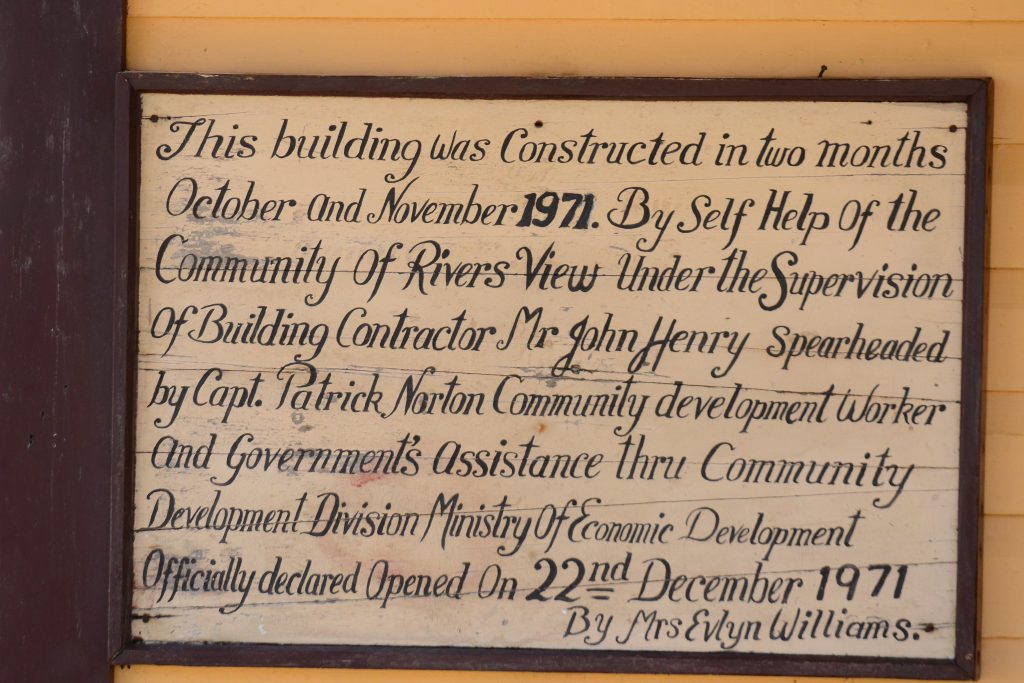 This building was Constructed in two months
October and November 1971. By Self Help Of the
Community Of Rivers View Under the Supervision
Of Building Contractor Mr John Henry Spearheaded
by Capt. Patrick Norton Community development Worker
and Government's assistance thru Community
Development Division Ministry Of Economic Development
Officially declared Opened On 22nd December 1971
By Mrs Evlyn Williams.